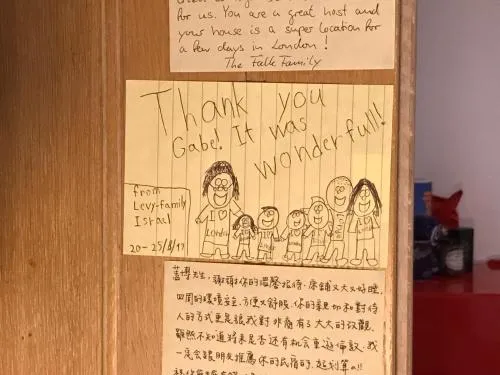 for us. You are a great host and
your house is a super location for
a few days in London!
The Falk Family
Thank you
Gabe! It was
wonderfull!
from
Levy-family
Israel
20-25/8/17
I ♡
London
先生,謝謝你的溫馨招待,床鋪又大又好睡,
四周的環境安全、方便又舒服,你的親切和對待
人的方式更是讓我對非裔有了大大的改觀,
雖然不知道將來是否還有機會重遊倫敦,我
一定會跟朋友推薦你的民宿的,超划算的!!